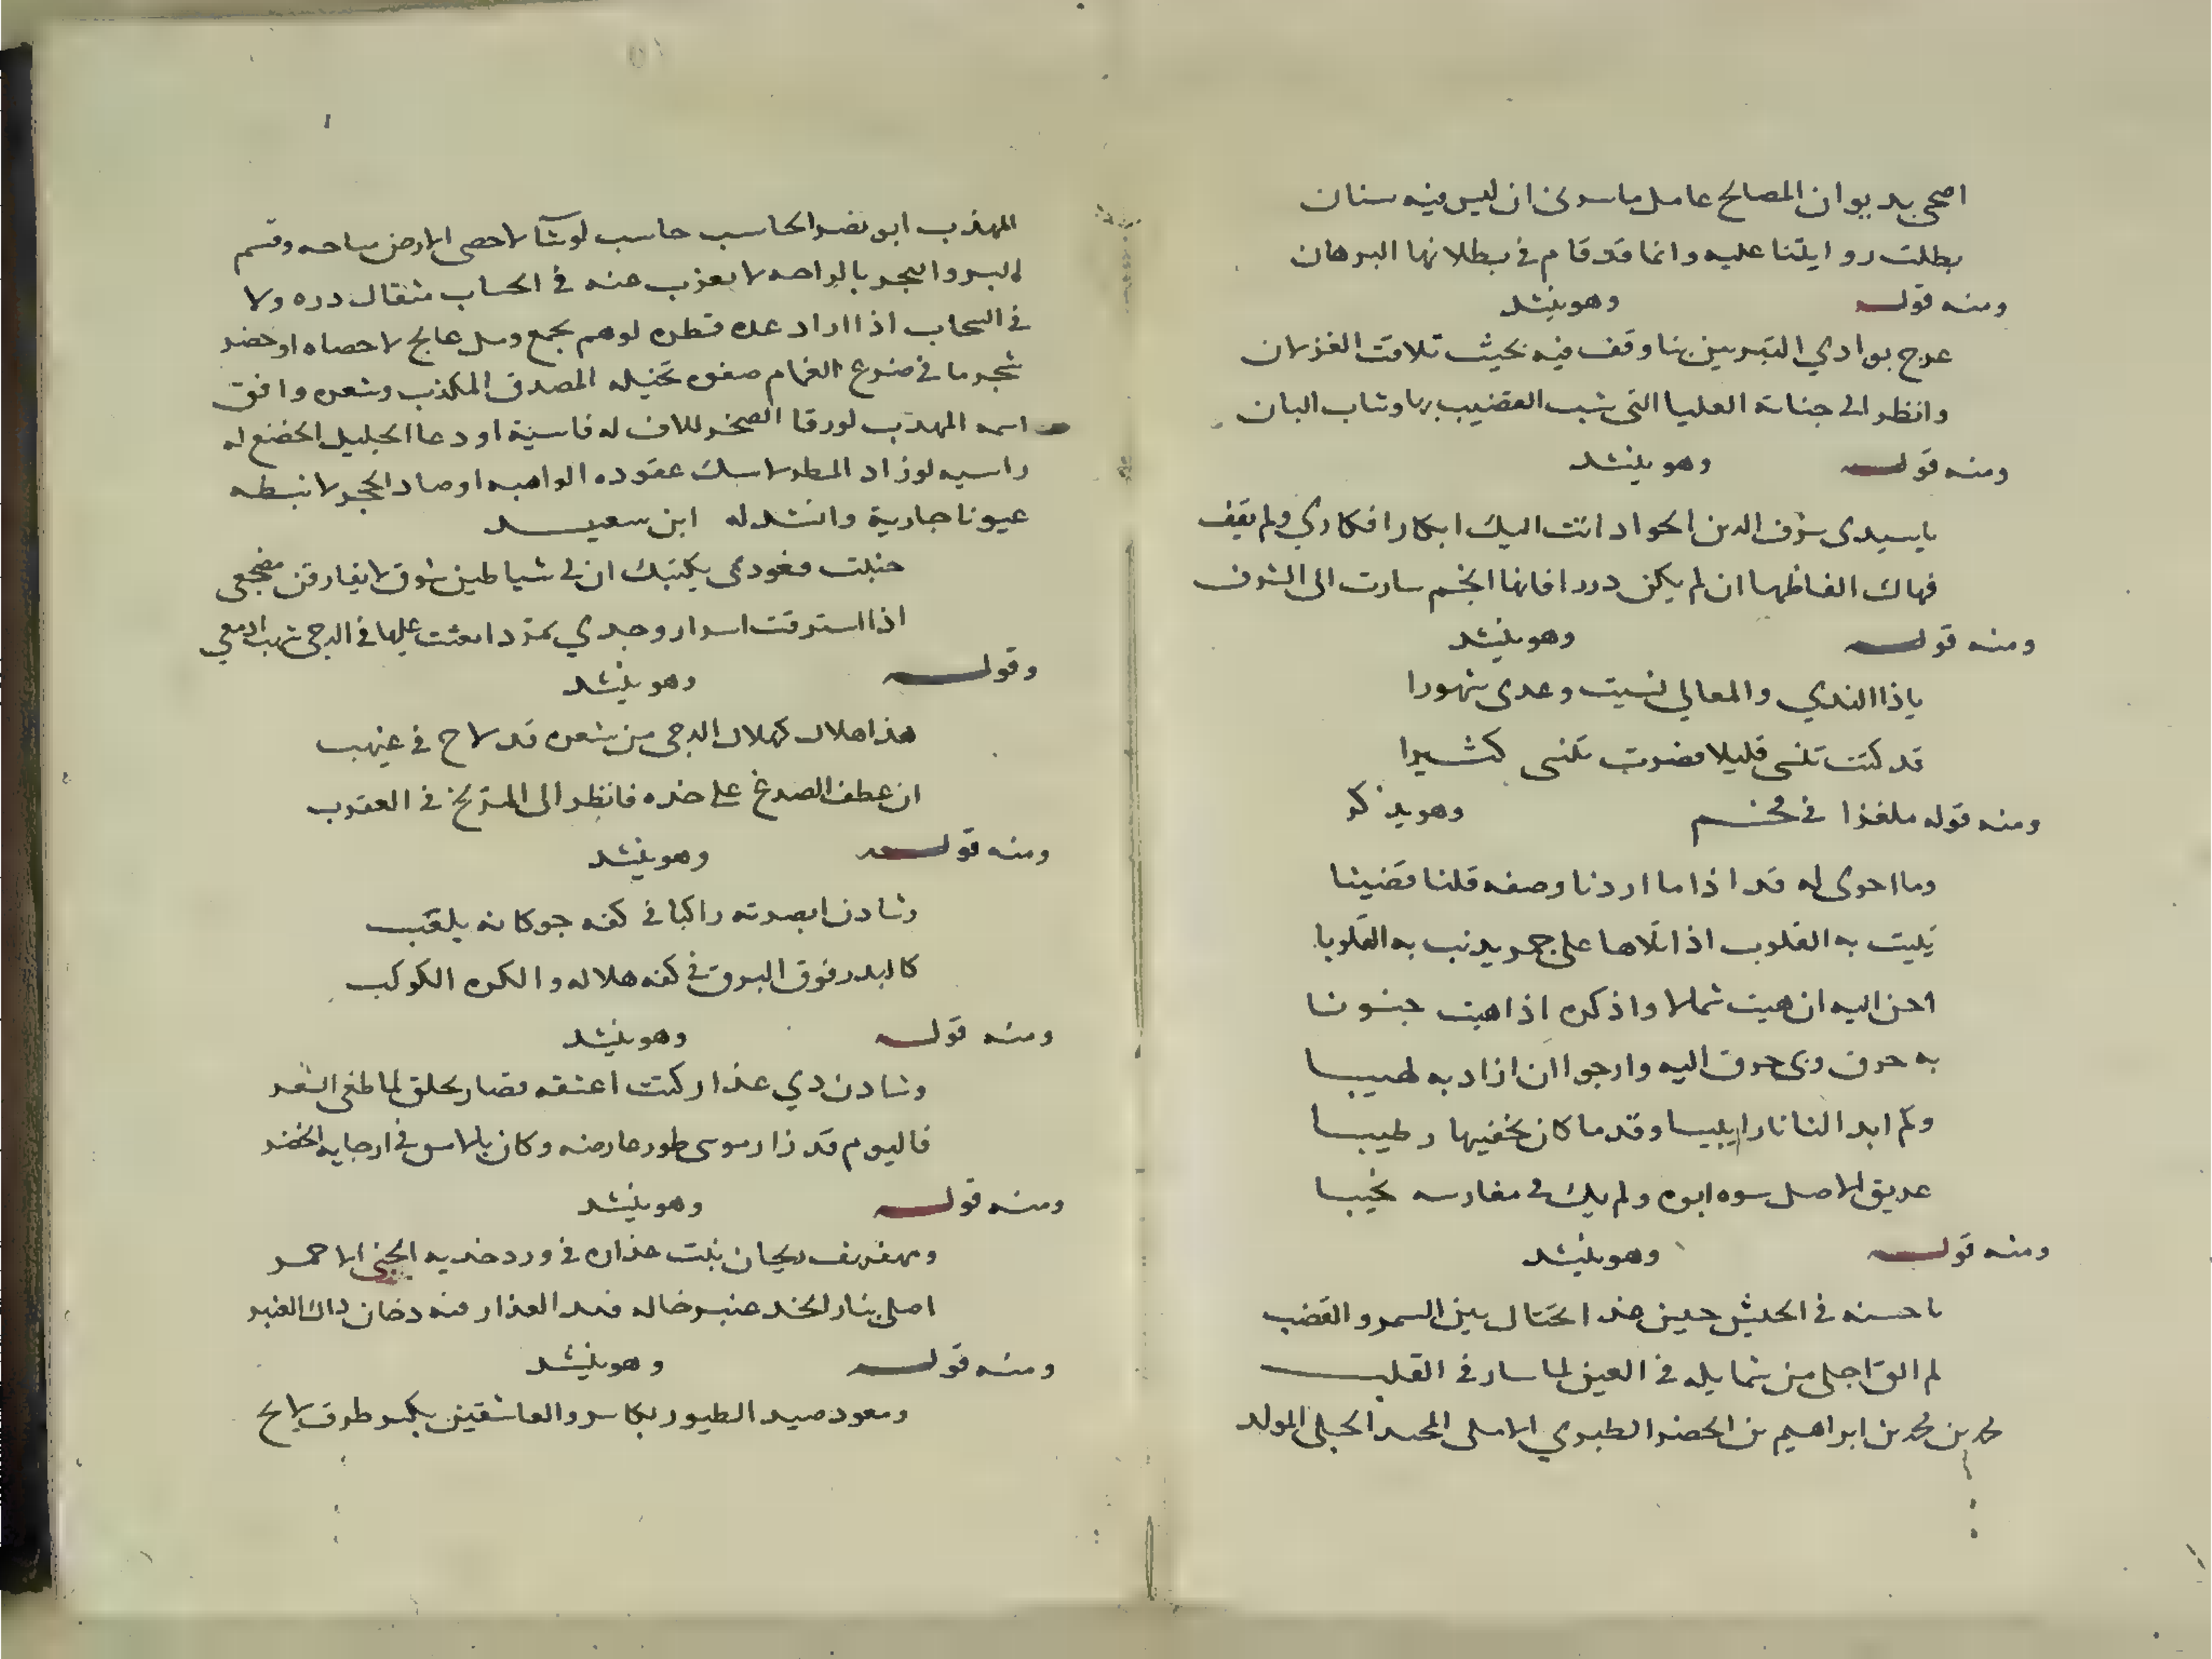 اضحى بديوان المصالح عامل ما سرني ان ليس فيه سنان
بطلت روايتنا عليه وانما قد قام في بطلانها البرهان
ومنه قوله وهو ينشد
عرج بوادي النيربين بنا وقف فيه بحيث تلافت الغزلان
وانظر الى جناته العليا التي شب القضيب بها وشاب البان
ومنه قوله وهو ينشد
يا سيدي شرف الدين الجواد اتت اليك ابكار افكاري ولم تقف
فهاك الفاظها ان لم يكن دررا فانها انجم سارت الى الشرف
ومنه قوله وهو ينشد
ياذا الندي والمعالي نسيت وعدى شهورا
قد كنت تنسى قليلا فصرت تنسى كثيرا
ومنه قوله ملغزا في فحم وهو يذكر
وما احوى له قد اذا ما اردنا وصفه قلنا قضيبا
يليت به القلوب اذا تلاها على جمر يذيب به القلوبا
احن اليه ان هبت شمالا واذكره اذا هبت جنوبا
به حرق وبي حرق اليه وارجوا ان ازاد به لهيبا
وكم ابدا لنا نارا وقدما كان يخفيها رطيبا
عريق الاصل سوه ابوه ولم يك في مغارسه نجيبا
ومنه قوله وهو ينشد
يا حسنه في الجيش حين غدا يختال بين السمر والقضب
لم الق احلى من شمايله في العين لما سار في القلب
محمد بن محمد بن ابراهيم بن الخضر الطبري الاملى الحلبي المولد
المهذب ابو نصر الحاسب حاسب لو شآ لاحصى الارض مساحه وقسم
البر والبحر بالراحه لا يعزب عنه في الحساب مثقال دره ولا
في السحاب اذا اراد عده قطره لو هم بجمع رمل عالج لاحصاه او خضر
شجر ما في ضرع الغمام صفوه تخيله المصدق المكذب وشعره وافق
اسمه المهذب لو رقا الصخر للان له قاسية او دعا الجليل لخضع له
راسيه لو زاد المطر لامسك عقوده الواهيه او صاد الحجر لانبطه
عيونا جارية وانشد له ابن سعيد
حننت فعوذني بكتبك ان لي شياطين شوق لا يفارقن مضجعي
اذا استرقت اسرار وجدي تمردا بعثت عليها في الدجى شهب ادمعي
وقوله وهو ينشد
هذا هلال كهلال الدجى من شعره قد لاح في غيهب
ان عطف الصدغ على خده فانظر الى المريخ في العقرب
ومنه قوله وهو ينشد
وشادن ابصرته راكبا في كفه جوكانه يلعب
كالبدر فوق البرق في كفه هلاله والكره الكوكب
ومنه قوله وهو ينشد
وشادن ذي عذار كنت اعشقه فصار يحلق لما طغى الشعر
فاليوم قد زار موسى طور عارضه وكان بالامس في ارجايه الخضر
ومنه قوله وهو ينشد
ومهفهف ريحان نبت عذاره في ورد خديه الجني الاحمر
اصلى بنار الخد عنبر خاله فبدا العذار منه دخان ذاك العنبر
ومنه قوله وهو ينشد
ومعود صيد الطيور بكاسر والعاشقين بكسر طرف لامح